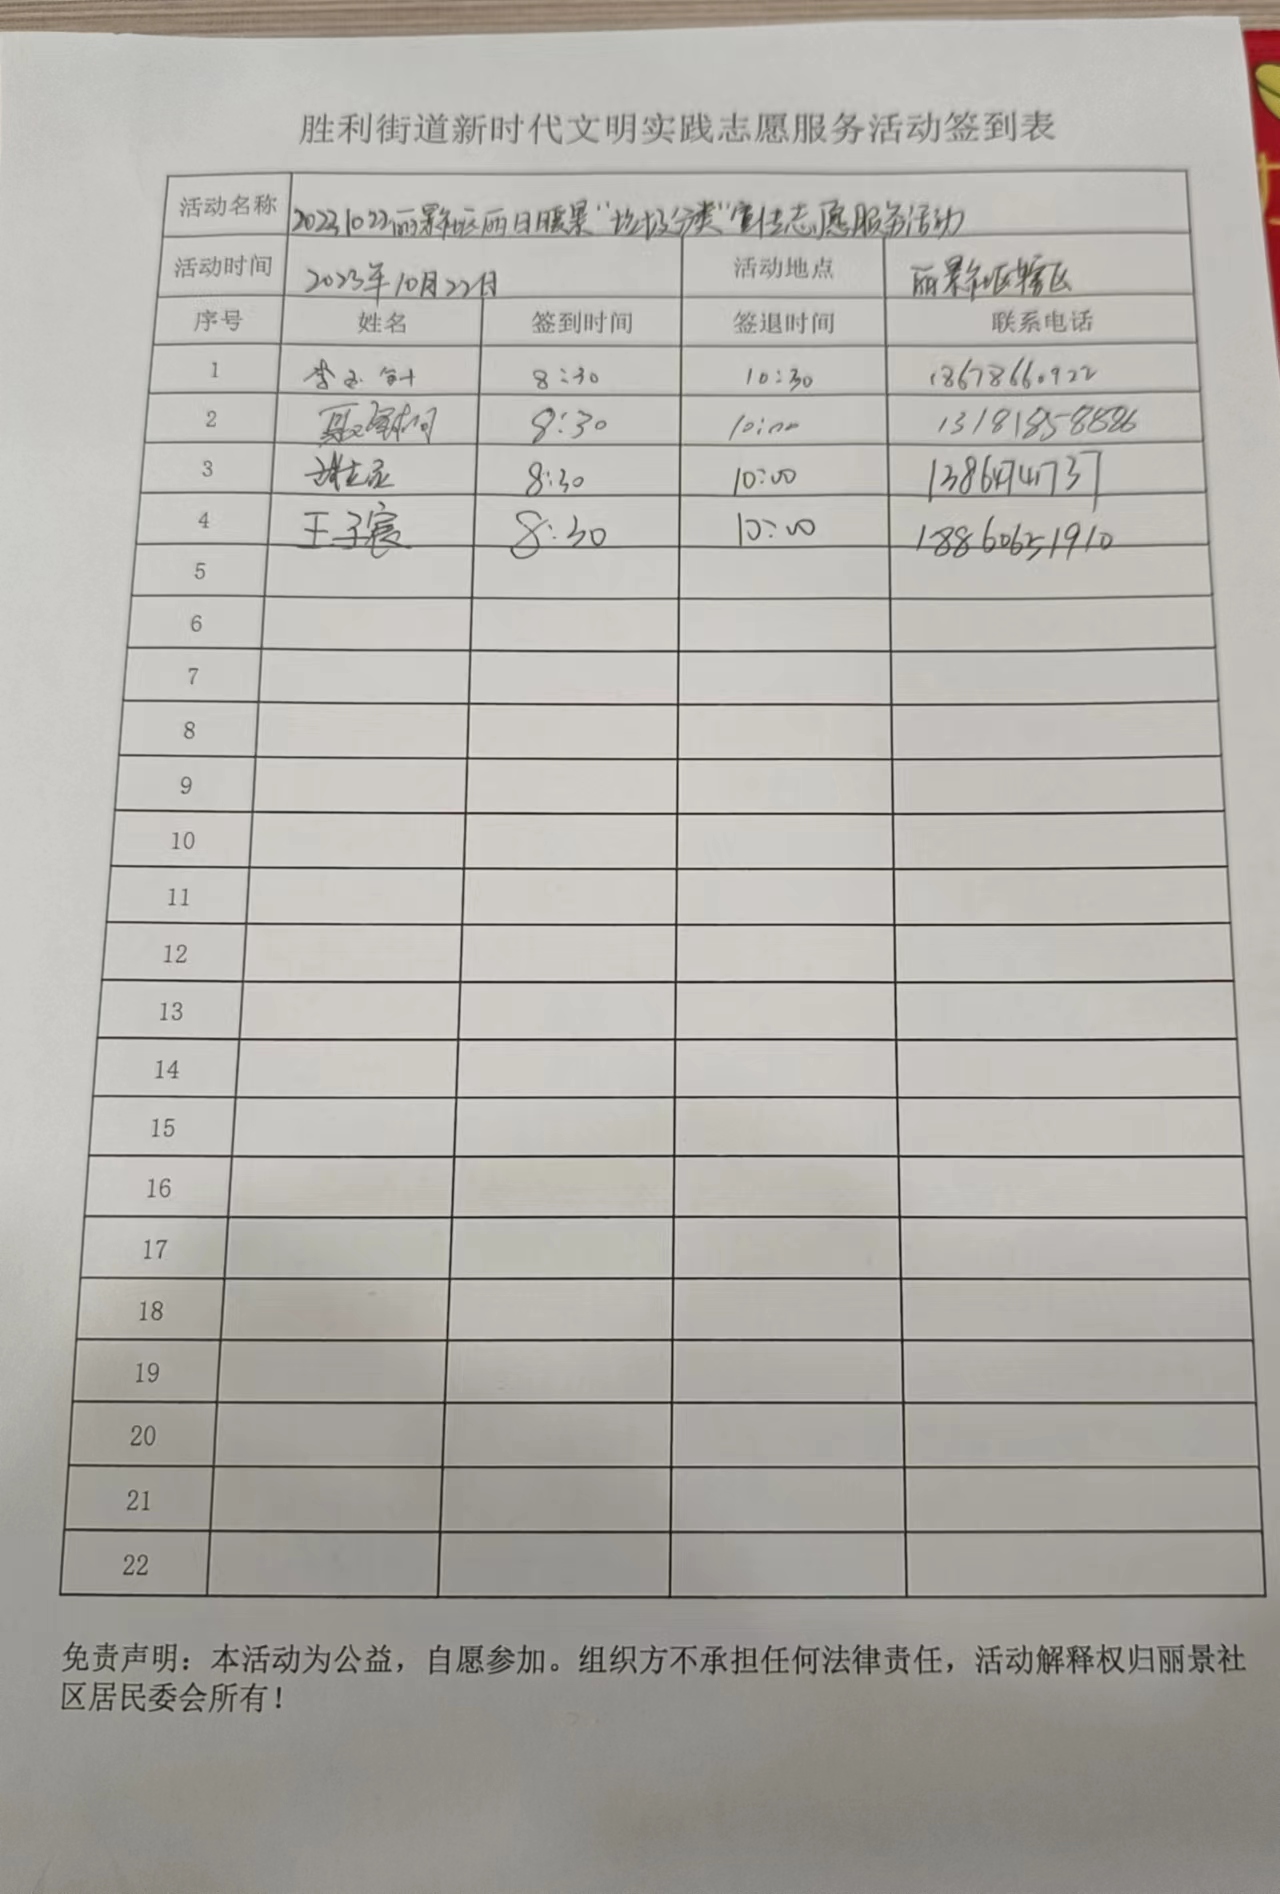 胜利街道新时代文明实践志愿服务活动签到表
活动名称 20231022丽景社区丽日暖景“垃圾分类”宣传志愿服务活动
活动时间 2023年10月22日 活动地点 丽景社区辖区
序号 姓名 签到时间 签退时间 联系电话
1 8:30 10:30 18678660922
2 8:30 10:00 13181858886
3 8:30 10:00
4 王子宸 8:30 10:00 18860651910
5
6
7
8
9
10
11
12
13
14
15
16
17
18
19
20
21
22
免责声明：本活动为公益，自愿参加。组织方不承担任何法律责任，活动解释权归丽景社
区居民委会所有！